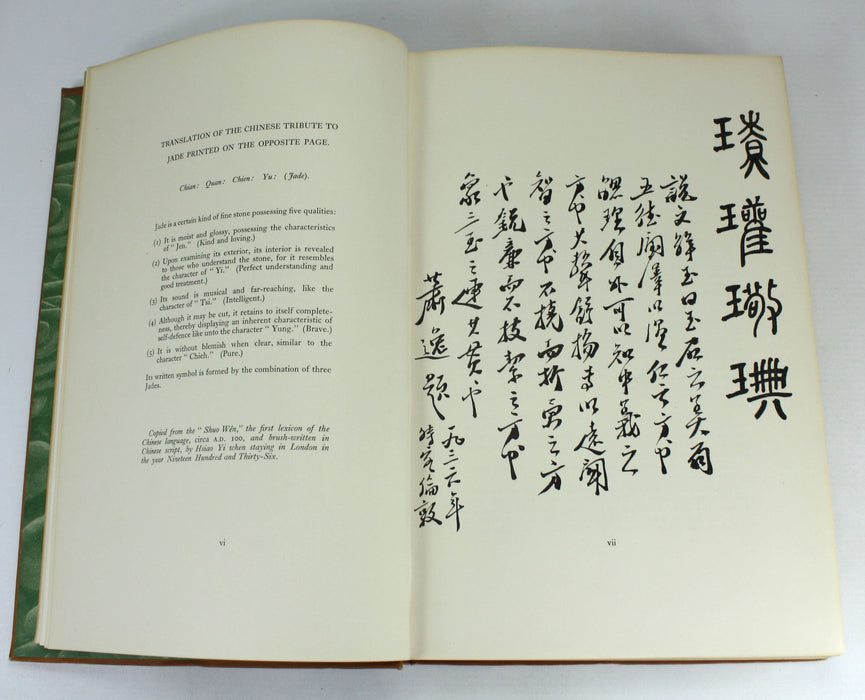 TRANSLATION OF THE CHINESE TRIBUTE TO
JADE PRINTED ON THE OPPOSITE PAGE.
Chian: Quan: Chien: Yu: (Jade).
Jade is a certain kind of fine stone possessing five qualities:
(1) It is moist and glossy, possessing the characteristics
of "Jen." (Kind and loving.)
(2) Upon examining its exterior, its interior is revealed
to those who understand the stone, for it resembles
the character of "Yi." (Perfect understanding and
good treatment.)
(3) Its sound is musical and far-reaching, like the
character of "Tsi." (Intelligent.)
(4) Although it may be cut, it retains to itself complete-
ness, thereby displaying an inherent characteristic of
self-defence like unto the character "Yung." (Brave.)
(5) It is without blemish when clear, similar to the
character "Chieh." (Pure.)
Its written symbol is formed by the combination of three
Jades.
Copied from the "Shuo Wên," the first lexicon of the
Chinese language, circa A.D. 100, and brush-written in
Chinese script, by Hsiao Yi when staying in London in
the year Nineteen Hundred and Thirty-Six.
vi
瓘璥琠
說文解玉曰玉石之美有
五德潤澤以溫仁之方也
䚡理自外可以知中義之
方也其聲舒揚尃以遠聞
智之方也不撓而折勇之方
也銳廉而不技絜之方也
象三玉之連其貫也
蕭逸題
一九三六年
時客倫敦
vii